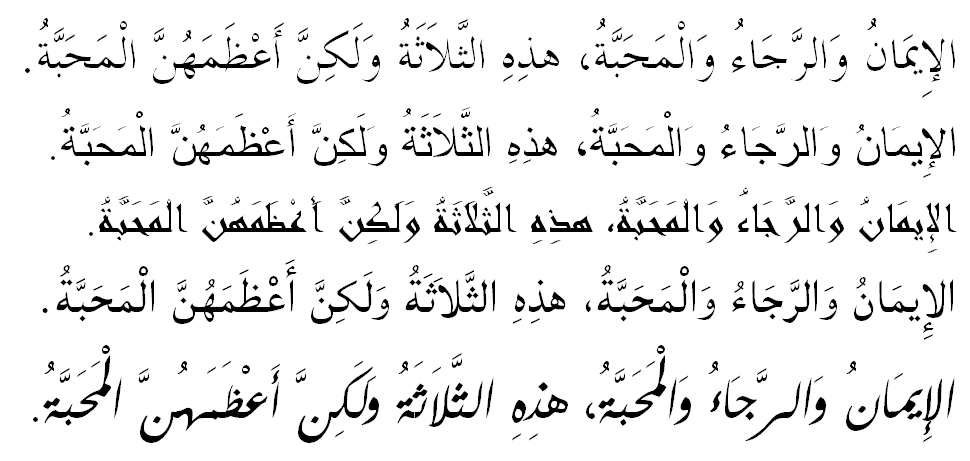 الإِيمَانُ وَالرَّجَاءُ وَالْمَحَبَّةُ، هذِهِ الثَّلاَثَةُ وَلَكِنَّ أَعْظَمَهُنَّ الْمَحَبَّةُ.
الإِيمَانُ وَالرَّجَاءُ وَالْمَحَبَّةُ، هذِهِ الثَّلاَثَةُ وَلَكِنَّ أَعْظَمَهُنَّ الْمَحَبَّةُ.
الإِيمَانُ وَالرَّجَاءُ وَالْمَحَبَّةُ، هذِهِ الثَّلاَثَةُ وَلَكِنَّ أَعْظَمَهُنَّ الْمَحَبَّةُ.
الإِيمَانُ وَالرَّجَاءُ وَالْمَحَبَّةُ، هذِهِ الثَّلاَثَةُ وَلَكِنَّ أَعْظَمَهُنَّ الْمَحَبَّةُ.
الإِيمَانُ وَالرَّجَاءُ وَالْمَحَبَّةُ، هذِهِ الثَّلاَثَةُ وَلَكِنَّ أَعْظَمَهُنَّ الْمَحَبَّةُ.